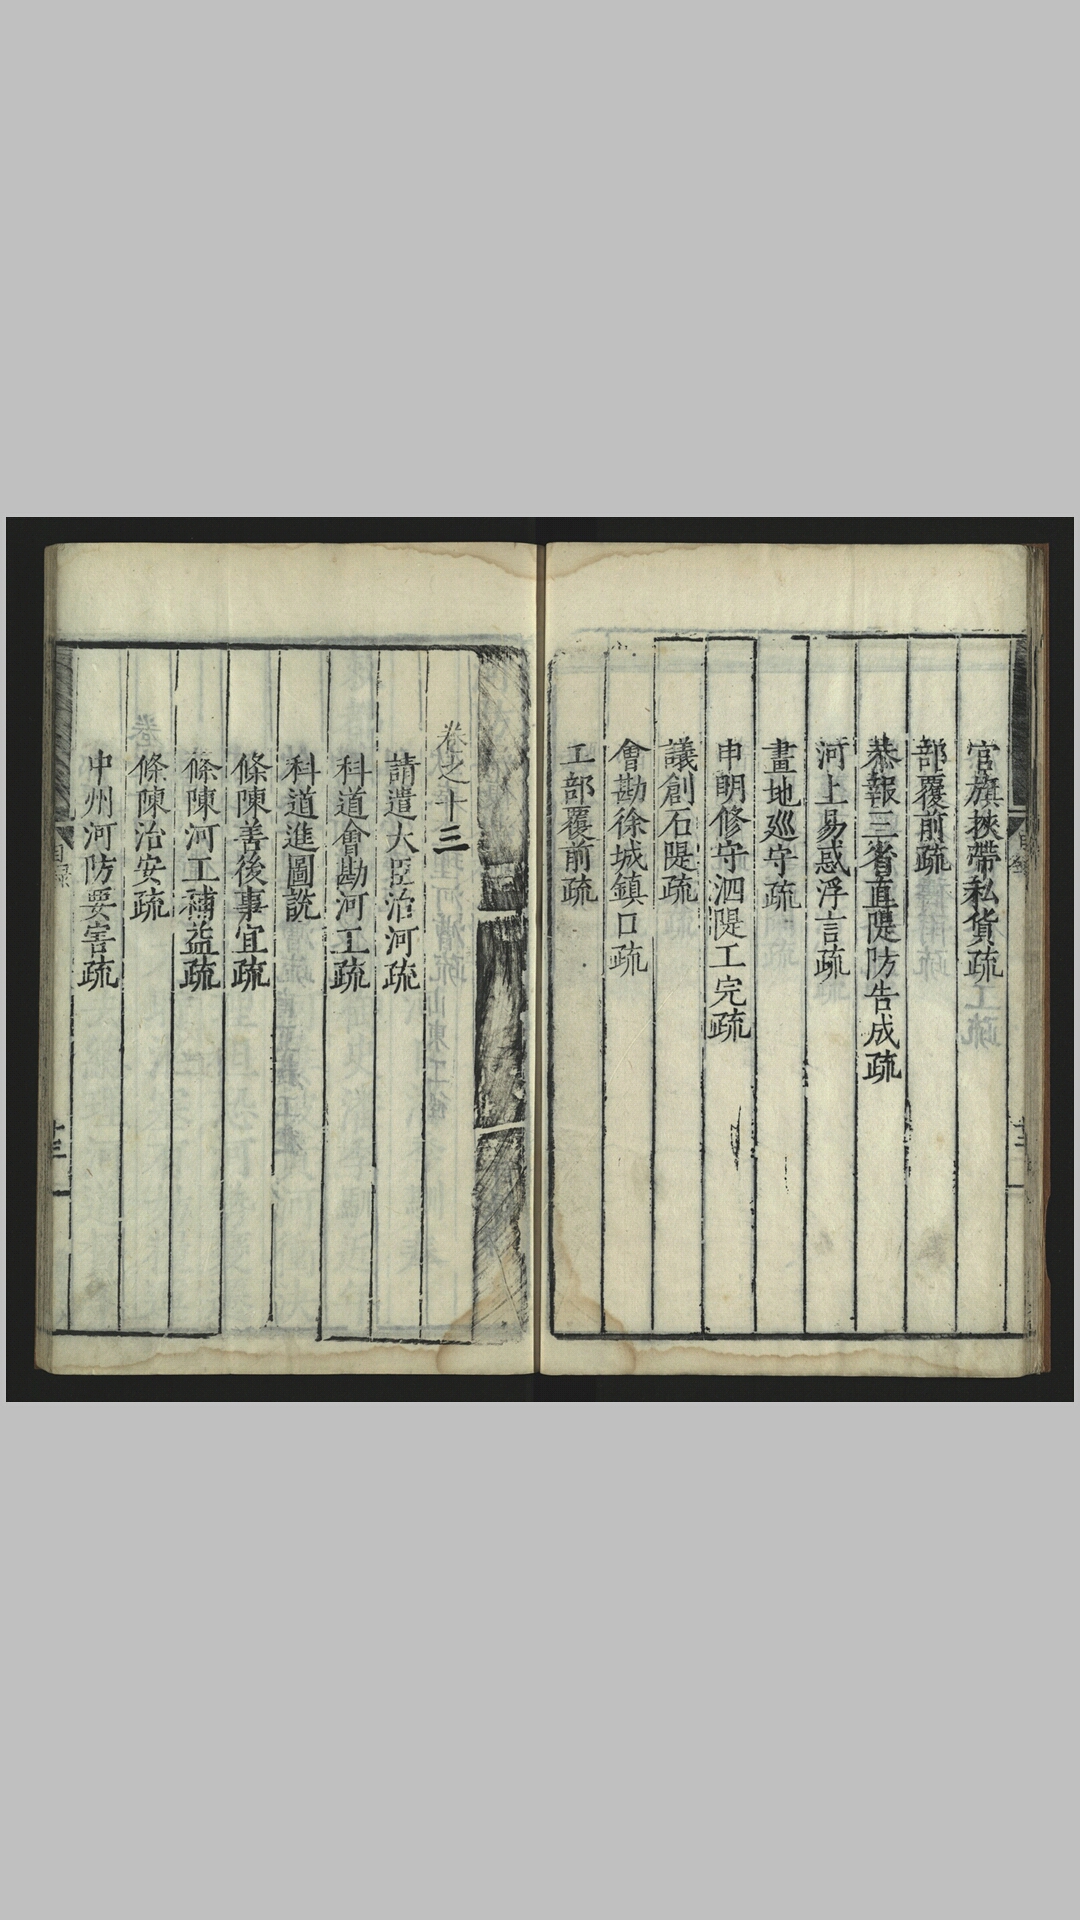 官旗挾帶私貨疏
部覆前疏
恭報三省直隄防告成疏
河上易惑浮言疏
畫地廵守疏
申明修守泗隄工完疏
議創石隄疏
會勘徐城鎮口疏
工部覆前疏
卷之十三
請遣大臣治河疏
科道會勘河工疏
科道進圖說
條陳善後事宜疏
條陳河工補益疏
條陳治安疏
中州河防要害疏
目録